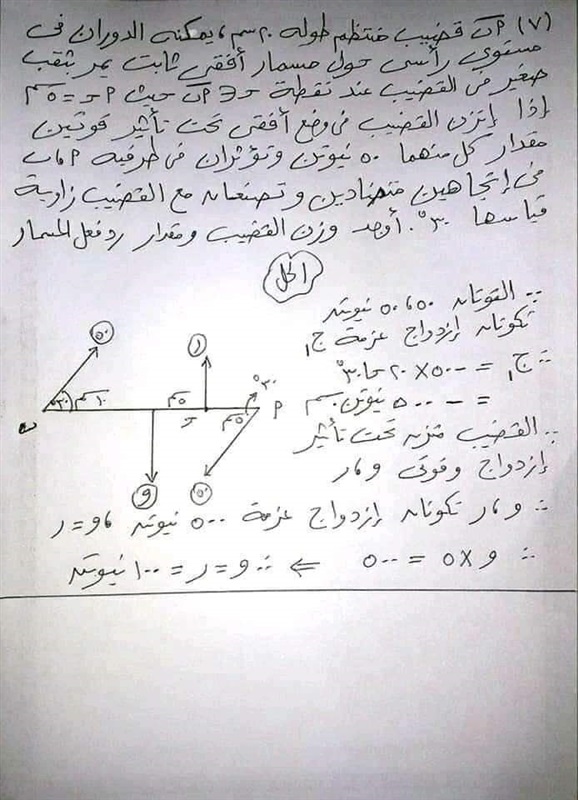 (٧) ٢ب قضيب منتظم طوله ٢٠ سم ، يمكنه الدوران فى
مستوي رأسى حول مسمار أفقى ثابت يمر بثقب
صغير فى القضيب عند نقطة حـ ∈ ٢ب حيث ٢حـ = ٥سم
إذا إتزن القضيب فى وضع أفقى تحت تأثير قوتين
مقدار كل منهما ٥٠ نيوتن وتؤثران فى طرفيه ٢ ، ب
فى إتجاهين متضادين وتصنعان مع القضيب زاوية
قياسها ٣٠° . أوجد وزن القضيب ومقدار رد فعل المسمار
الحل
∵ القوتان ٥٠ ، ٥٠ نيوتن
تكونان إزدواج عزمة ج١
∴ ج١ = -٥٠ × ٢٠ حا ٣٠°
= - ٥٠٠ نيوتن.سم
∵ القضيب متزن تحت تأثير
إزدواج وقوتى و ، ر
∴ و ، ر تكونان إزدواج عزمة ٥٠٠ نيوتن ، و = ر
∴ و × ٥ = ٥٠٠ ⇐ ∴ و = ر = ١٠٠ نيوتن
٥٠
ر
٣٠°
٣٠°
١٠سم
٥سم
حـ
٥سم
٢
ب
و
٥٠